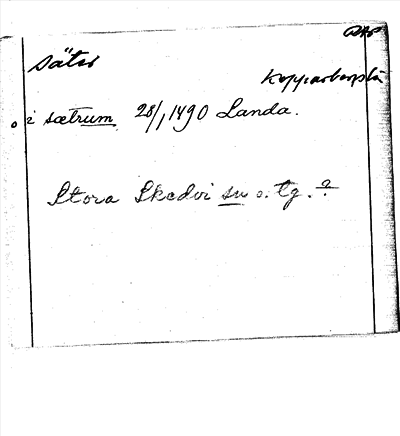 Säter
Kopparbergs lä
i sætrum 28/1 1490 Landa.
Stora Skedvi sn o. tg. ?